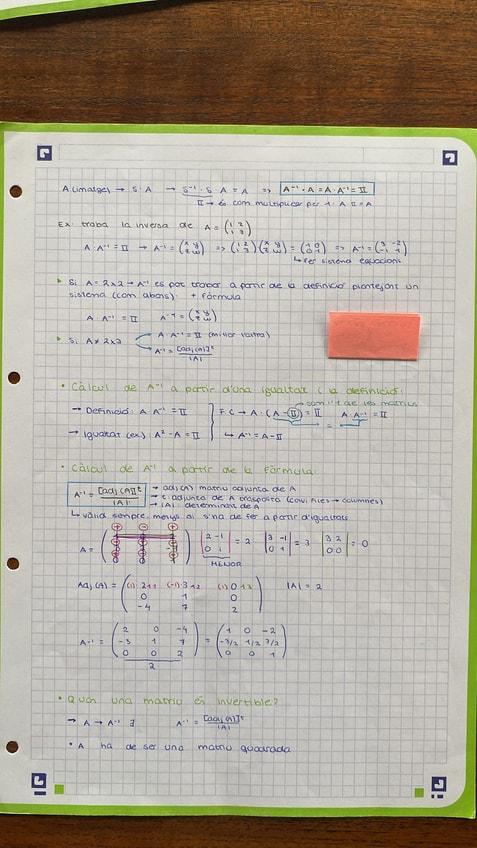 A (imatge) → S·A → S⁻¹·S A = A => A⁻¹·A = A·A⁻¹ = II
II → és com multiplicar per 1: A·II = A
Ex: troba la inversa de A = (1 2 / 1 3)
A·A⁻¹ = II → A⁻¹ = (x y / z w) => (1 2 / 1 3)(x y / z w) = (1 0 / 0 1) => A⁻¹ = (3 -2 / -1 1)
↳ Fer sistema equacions
Si A = 2x2 → A⁻¹ es pot trobar a partir de la definició plantejant un
sistema (com abans): + Fórmula
A·A⁻¹ = II A⁻¹ = (x y / z w)
Si A ≠ 2x2 A·A⁻¹ = II
A⁻¹ = [adj(A)]ᵗ / |A|
• Càlcul de A⁻¹ a partir d'una igualtat (la definició):
→ Definició: A·A⁻¹ = II F.C → A·(A-II) = II A·A⁻¹ = II
→ Igualtat (ex) A² - A = II ↳ A⁻¹ = A - II
• Càlcul de A⁻¹ a partir de la fórmula:
A⁻¹ = [adj(A)]ᵗ / |A| → adj(A) matriu adjunta de A
→ t: adjunta de A trasposta (canvi files → columnes)
→ |A|: determinant de A
↳ vàlid sempre, menys si s'ha de fer a partir d'igualtats
A = |2 -1 / 0 1| = 2 |3 -1 / 0 1| = 3 |3 2 / 0 0| = 0
MENOR
Adj(A) = ( (1)·2 + 1 (-1)·3 + 2 (1)·0 + 3 / 0 1 0 / -4 7 2 ) |A| = 2
A⁻¹ = (2 0 -4 / -3 1 7 / 0 0 2) / 2 = (1 0 -2 / -3/2 1/2 7/2 / 0 0 1)
• Quan una matriu és invertible?
→ A → A⁻¹ ∃ A⁻¹ = [adj(A)]ᵗ / |A|
• A ha de ser una matriu quadrada